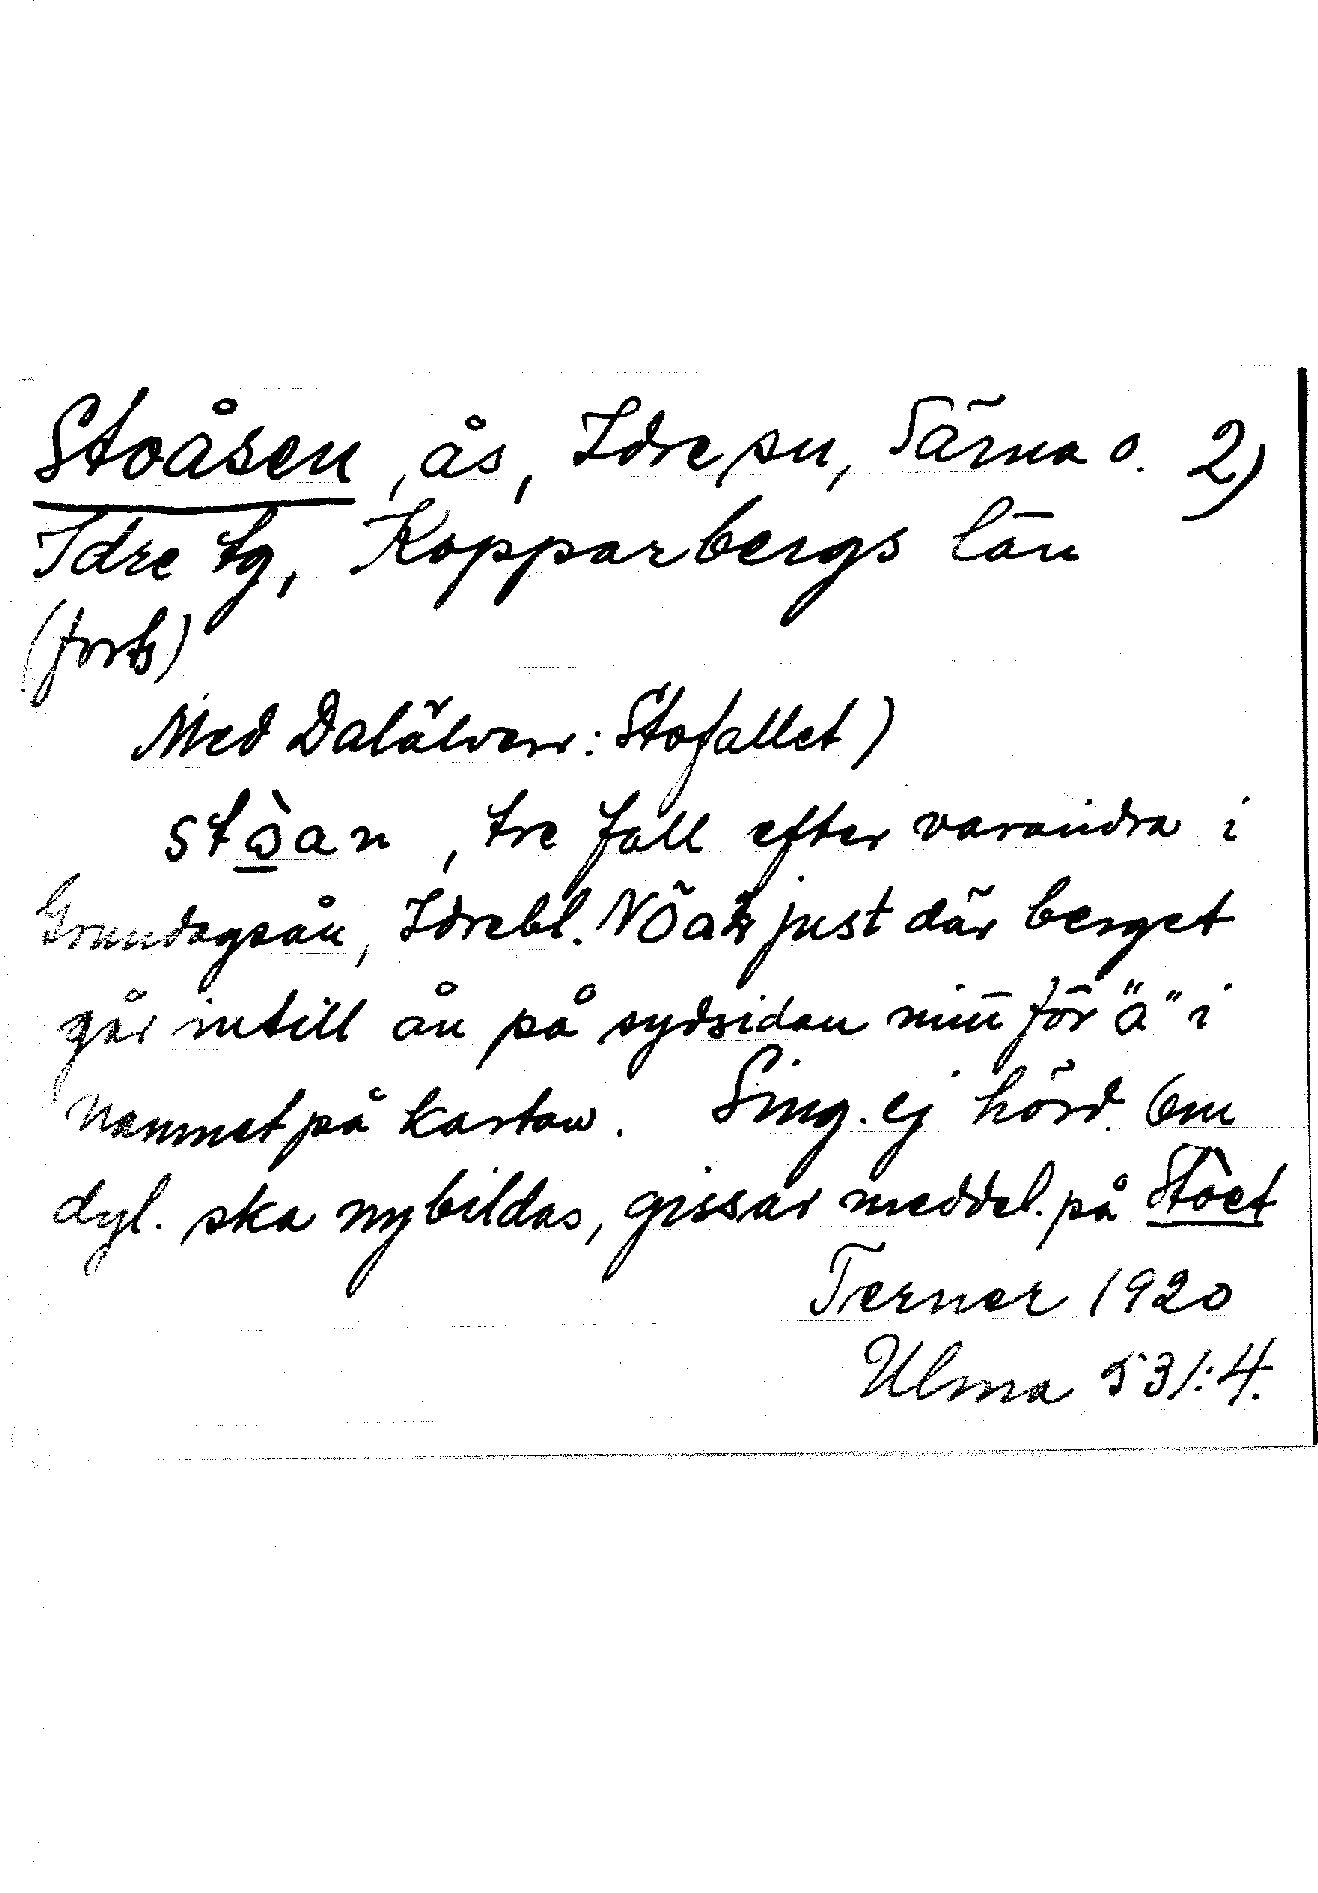 Stoåsen, ås, Idre sn, Särna o. 2)
Idre tg, Kopparbergs län
(forts)
Med Dalälven: Stofallet)
stòan, tre fall efter varandra i
Grundagsån, Idrebl. NÖ just där berget
går intill ån på sydsidan mitt för "ä" i
namnet på kartan. Sing. ej hörd. Om
dyl. ska nybildas, gissar meddel. på Stòet
Terner 1920
Ulma 531:4.